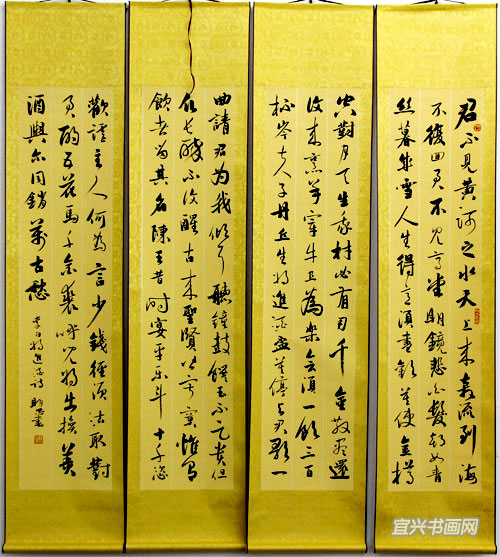 君不见黄河之水天上来奔流到海
不復回君不见高堂明鏡悲白髮朝如青
丝暮成雪人生得意須盡歡莫使金樽
空對月天生我材必有用千金散盡還
復来烹羊宰牛且為樂會須一飲三百
杯岑夫子丹丘生将進酒盃莫停与君歌一
曲請君为我倾耳聽鐘鼓饌玉不足貴但
願长醉不復醒古来聖賢皆寂寞惟有
飲者留其名陳王昔时宴平乐斗酒十千恣
歡謔主人何為言少錢徑須沽取對
君酌五花馬千金裘呼兒将出换美
酒與尔同銷萬古愁
李白将進酒詩 書
宜兴书画网